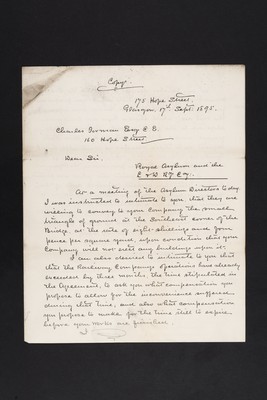 Copy.
175 Hope Street,
Glasgow, 17th Sept. 1895.
Charles Forman Esq C.E.
160 Hope Street.
Dear Sir,
Royal Asylum and the
Ry Coy.
At a meeting of the Asylum Directors today
I was instructed to intimate to you that they are
willing to convey to your Company the small
triangle of ground at the Southeast corner of the
Bridge at the rate of eight shillings and four
pence per square yard, upon condition that your
Company will not erect any buildings upon it.
I am also desired to intimate to you that
that the Railway Company's operations have already
exceeded by three months the time stipulated in
the Agreement, to ask you what compensation you
propose to allow for the inconvenience suffered
during that time, and also what compensation
you propose to make for the time still to expire
before your works are finished.
I